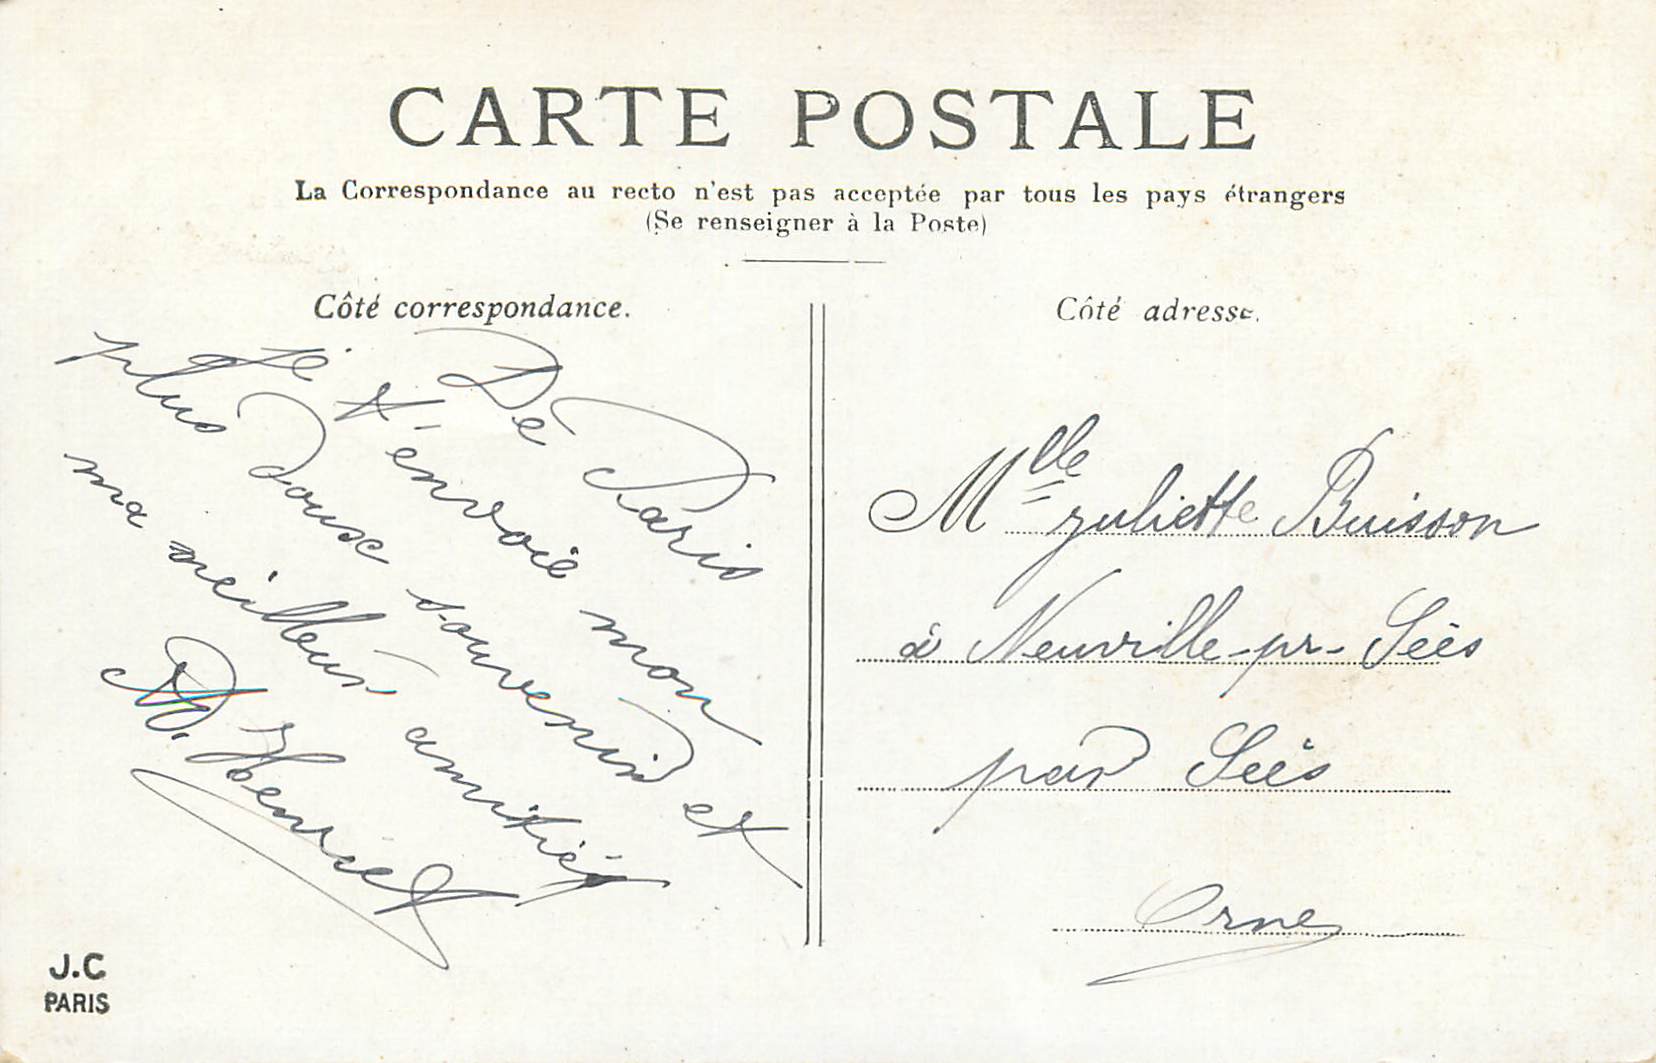 CARTE POSTALE
La Correspondance au recto n'est pas acceptée par tous les pays étrangers
(Se renseigner à la Poste)
Côté correspondance.
De Paris
Je t'envoie mon
plus doux souvenir et
ma meilleur amitié
Henriet
J.C
PARIS
Côté adresse.
Mlle Juliette Buisson
à Neuville-pr-Sées
par Sées
Orne